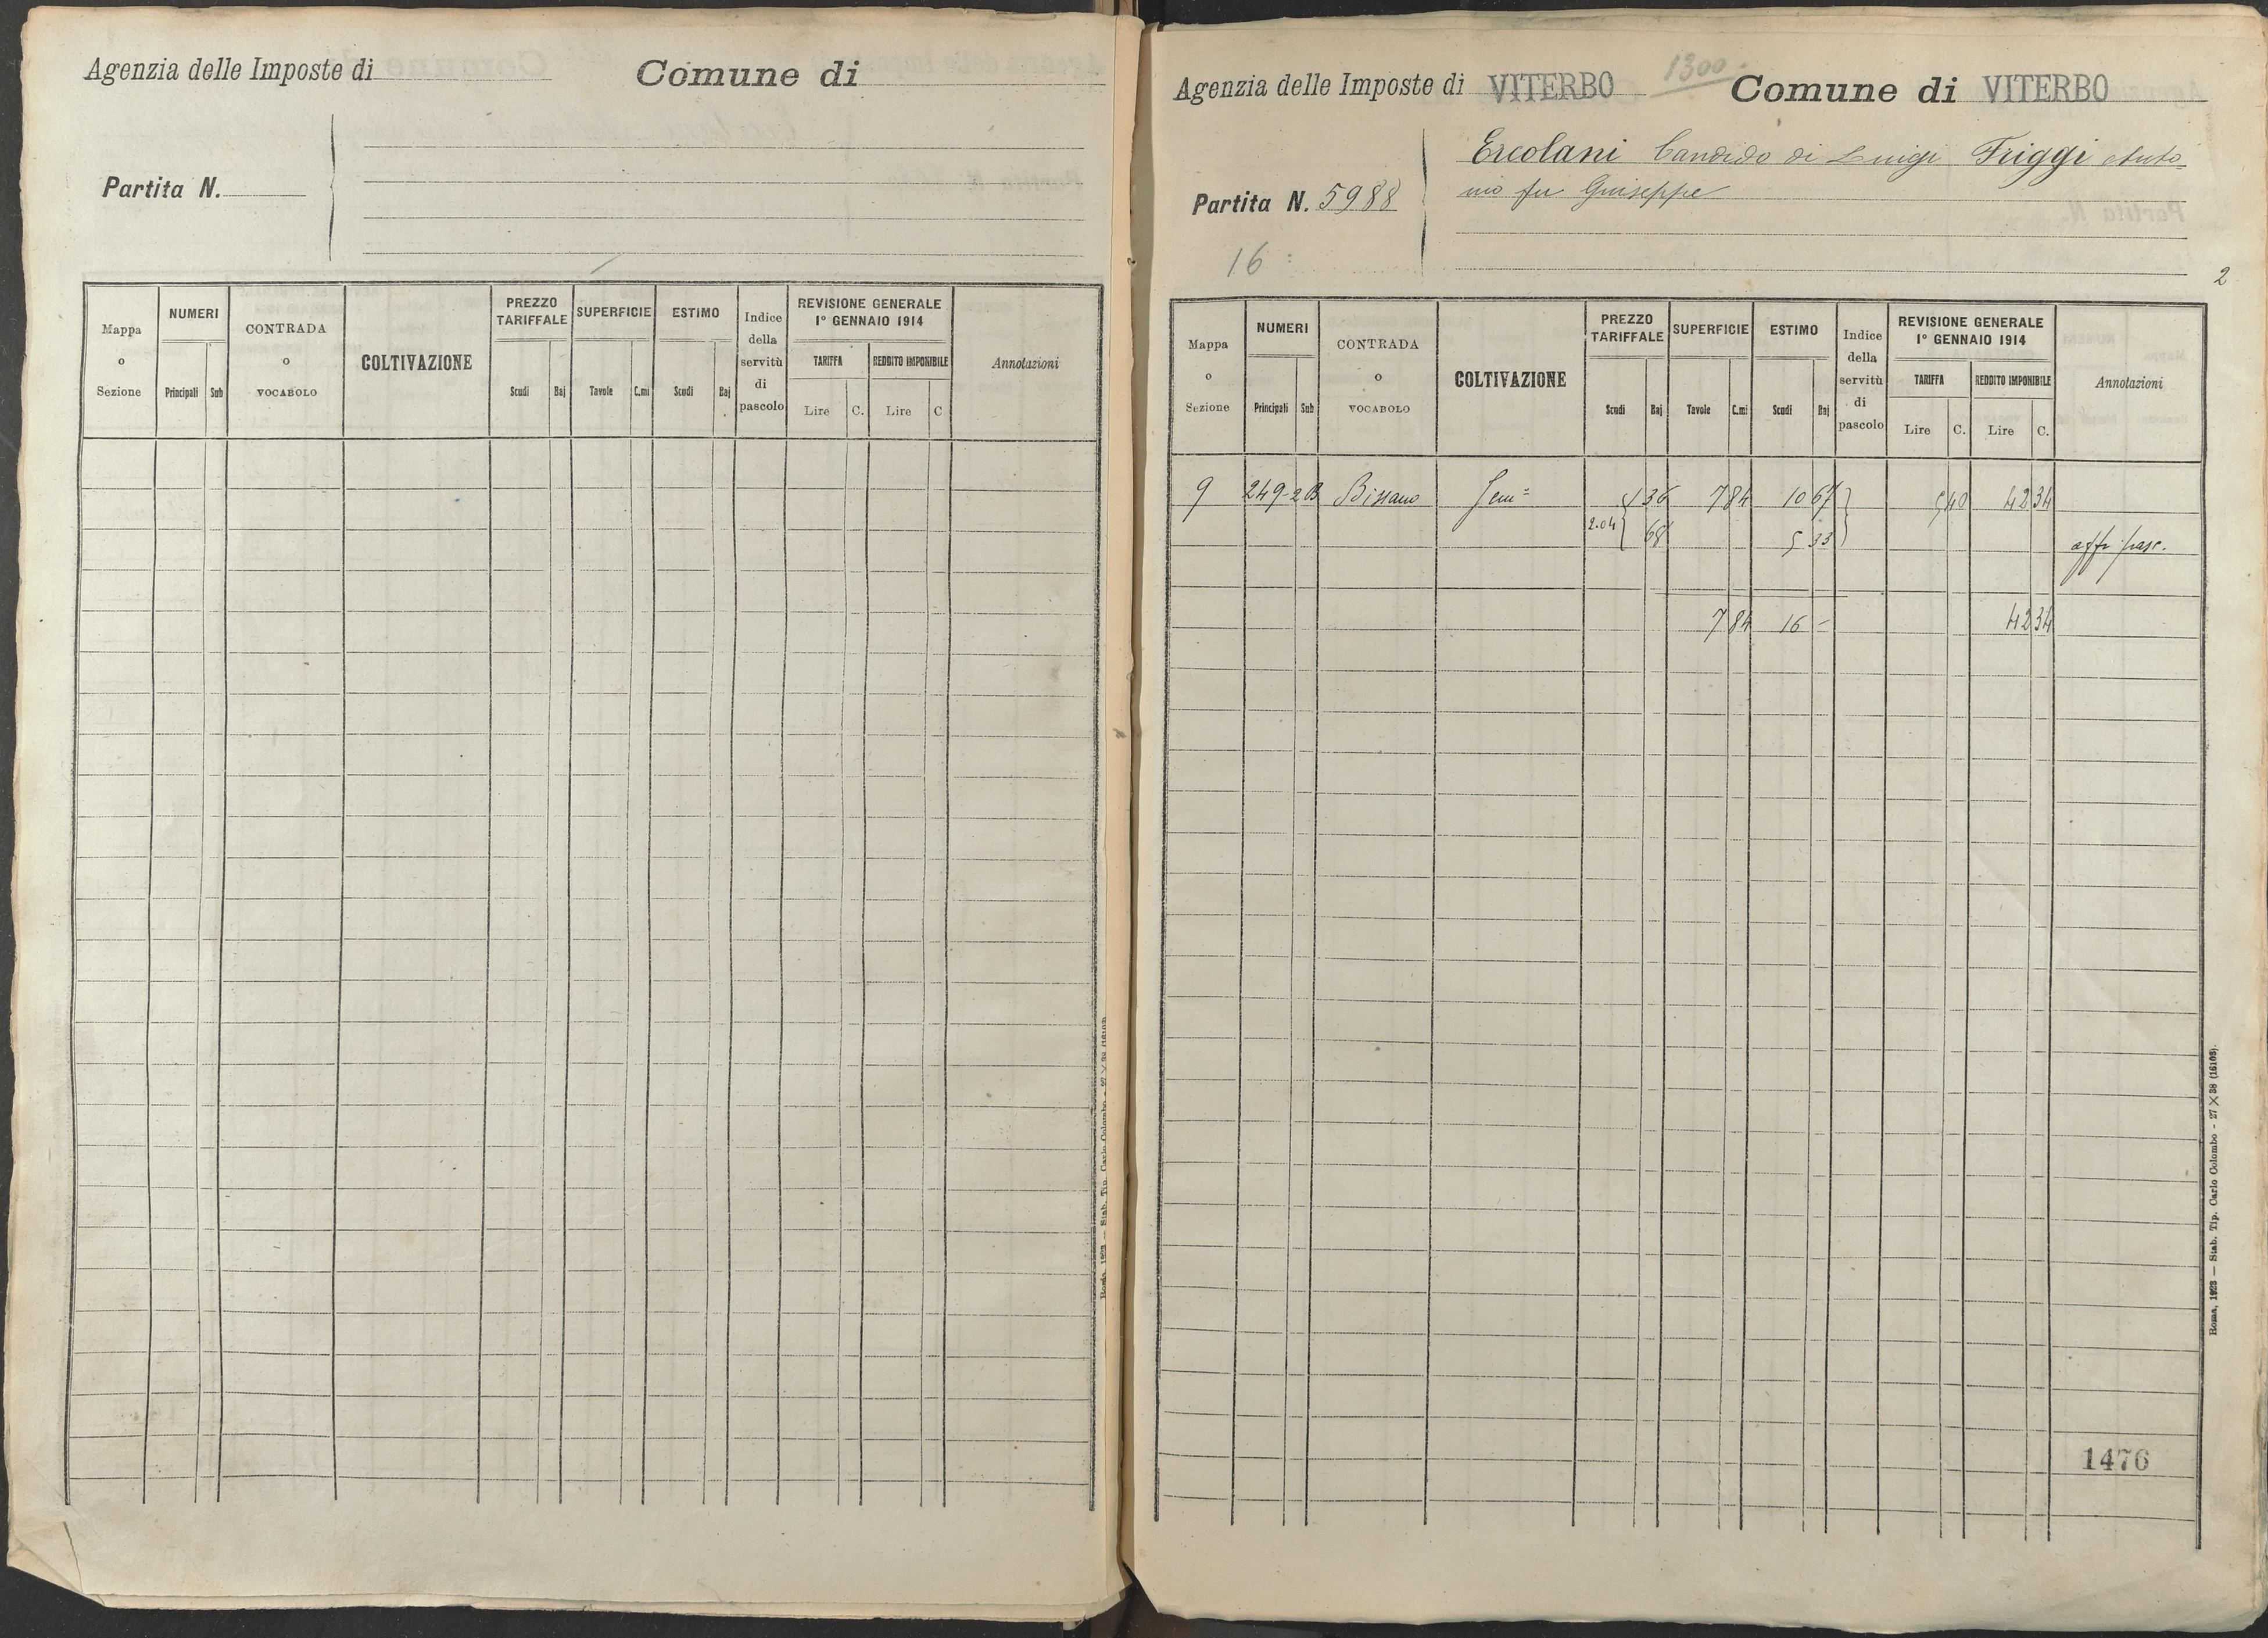 Agenzia delle Imposte di Comune di
Partita N.
Mappa o Sezione
NUMERI
Principali Sub
CONTRADA o VOCABOLO
COLTIVAZIONE
PREZZO TARIFFALE
Scudi Baj
SUPERFICIE
Tavole C.mi
ESTIMO
Scudi Baj
Indice della servitù di pascolo
REVISIONE GENERALE 1° GENNAIO 1914
TARIFFA REDDITO IMPONIBILE
Lire C. Lire C
Annotazioni
Roma, 1923 — Stab. Tip. Carlo Colombo - 27 × 38 (16103).
1300
Agenzia delle Imposte di VITERBO Comune di VITERBO
Ercolani Candido di Luigi Friggi Anto-
nio fu Giuseppe
Partita N. 5988
16
2
Mappa o Sezione
NUMERI
Principali Sub
CONTRADA o VOCABOLO
COLTIVAZIONE
PREZZO TARIFFALE
Scudi Baj
SUPERFICIE
Tavole C.mi
ESTIMO
Scudi Baj
Indice della servitù di pascolo
REVISIONE GENERALE 1° GENNAIO 1914
TARIFFA REDDITO IMPONIBILE
Lire C. Lire C.
Annotazioni
9 249-2 B Bissano Sem= 1 36 7 84 10 67 5 40 42 34
2.04 68 5 33 affr. pasc.
7 84 16 - 42 34
1476
Roma, 1923 — Stab. Tip. Carlo Colombo - 27 × 38 (16103).